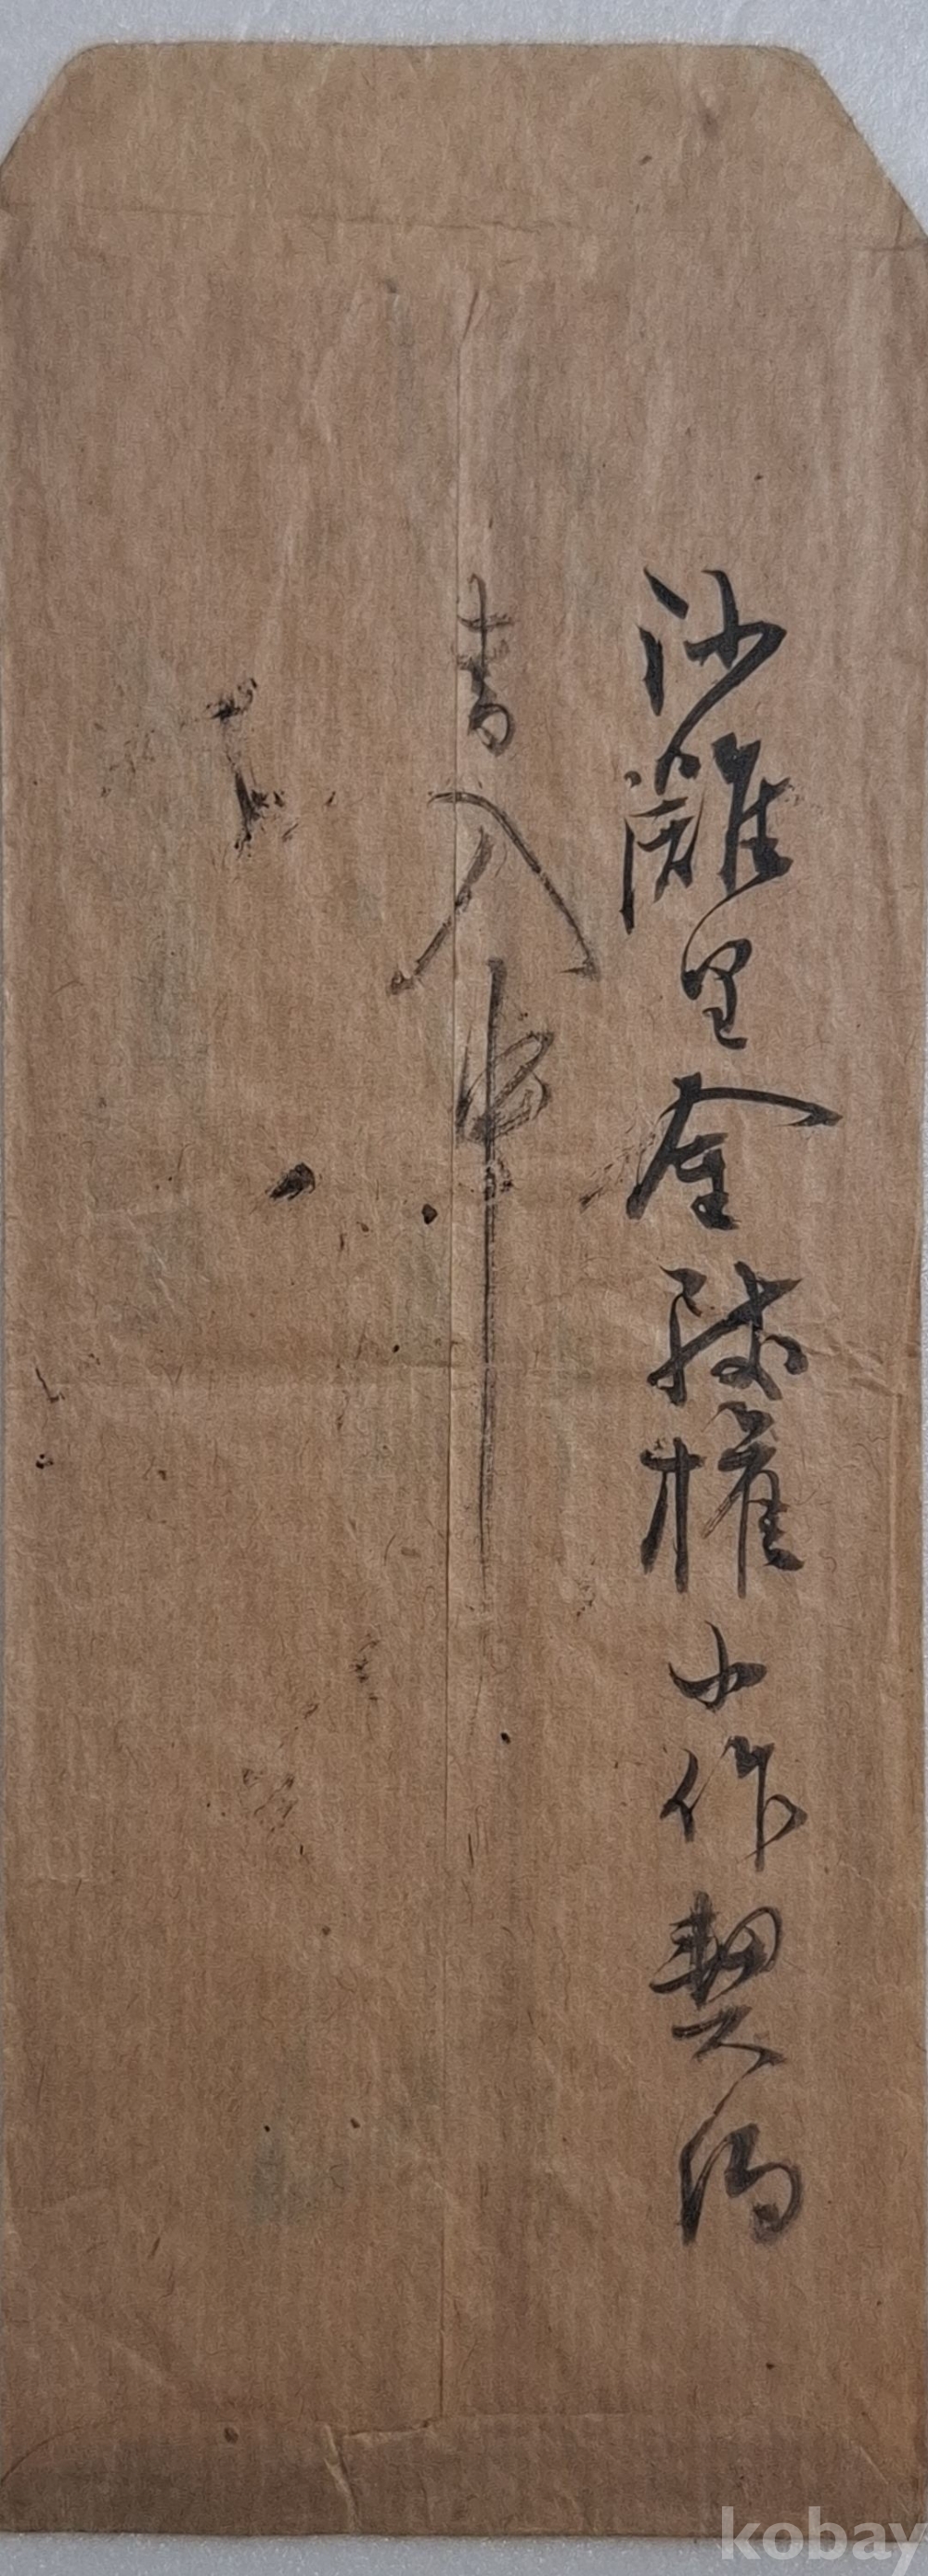 沙灘里金 權小作契約
書入中
kobay